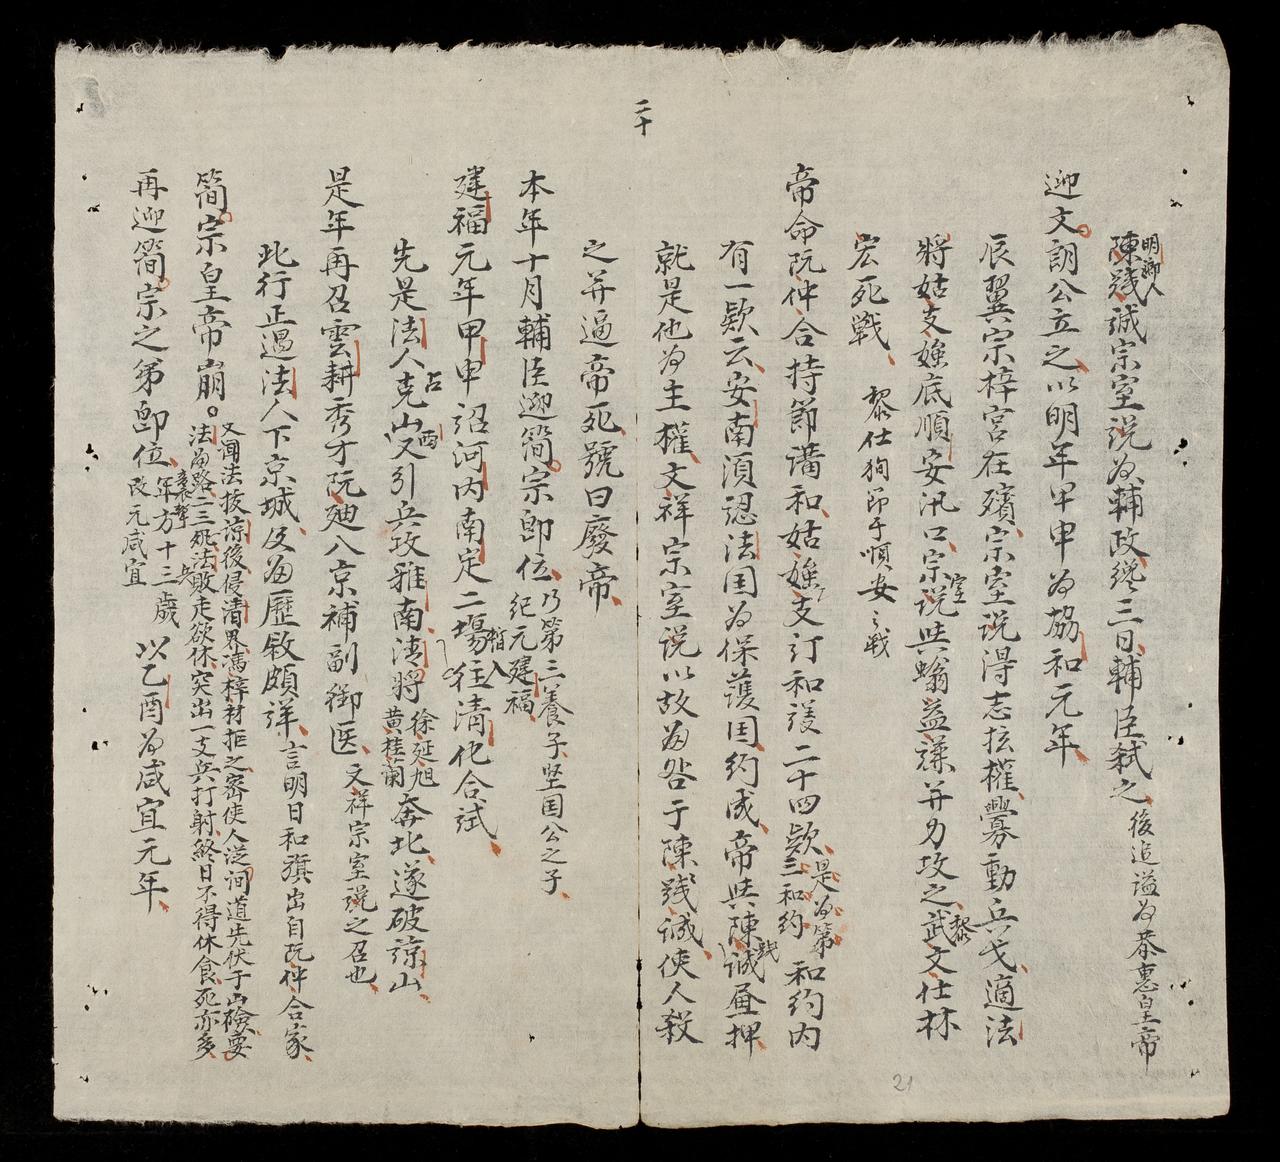 二十
陳踐誠宗室説為輔政終三日輔臣弒之後追謚為恭惠皇帝
明鄉人
迎文朗公立之以明年甲申為協和元年
辰翼宗梓宮在殯宗室説得志抎權釁動兵戈適法
將姑支䧺底順安汛口宗室説共螉益謙并力攻之黎武文仕林
宏死戰 黎仕狥即于順安之戰
帝命阮仲合持節講和姑䧺支訂和議二十四欵是為第三和約和約内
有一欵云安南湏認法国為保護国約成帝共陳踐誠畫押
就是他為主權文祥宗室説以故為咎于陳踐誠使人殺
之并逼帝死號曰廢帝
本年十月輔臣迎簡宗即位乃第三養子坚国公之子
紀元建福
建福元年甲申詔河内南定二場暫入往清化合試
先是法人克山西又引兵攻雅南清將徐延旭黄桂蘭奔北遂破諒山
占
是年再召雲耕秀才阮廸入京補副御医文祥宗室説之召也
此行正遇法人下京城及為歷敘頗詳言明日和旗出自阮仲合家
簡宗皇帝崩又聞法抜諒後侵清界馮梓材拒之密使人泛洞道先伏于山險要
法為路二三死法兵敗走欲休突出一支兵打射終日不得休食死亦多
再迎簡宗之弟即位年方十三歲改元咸宜以乙酉為咸宜元年
21